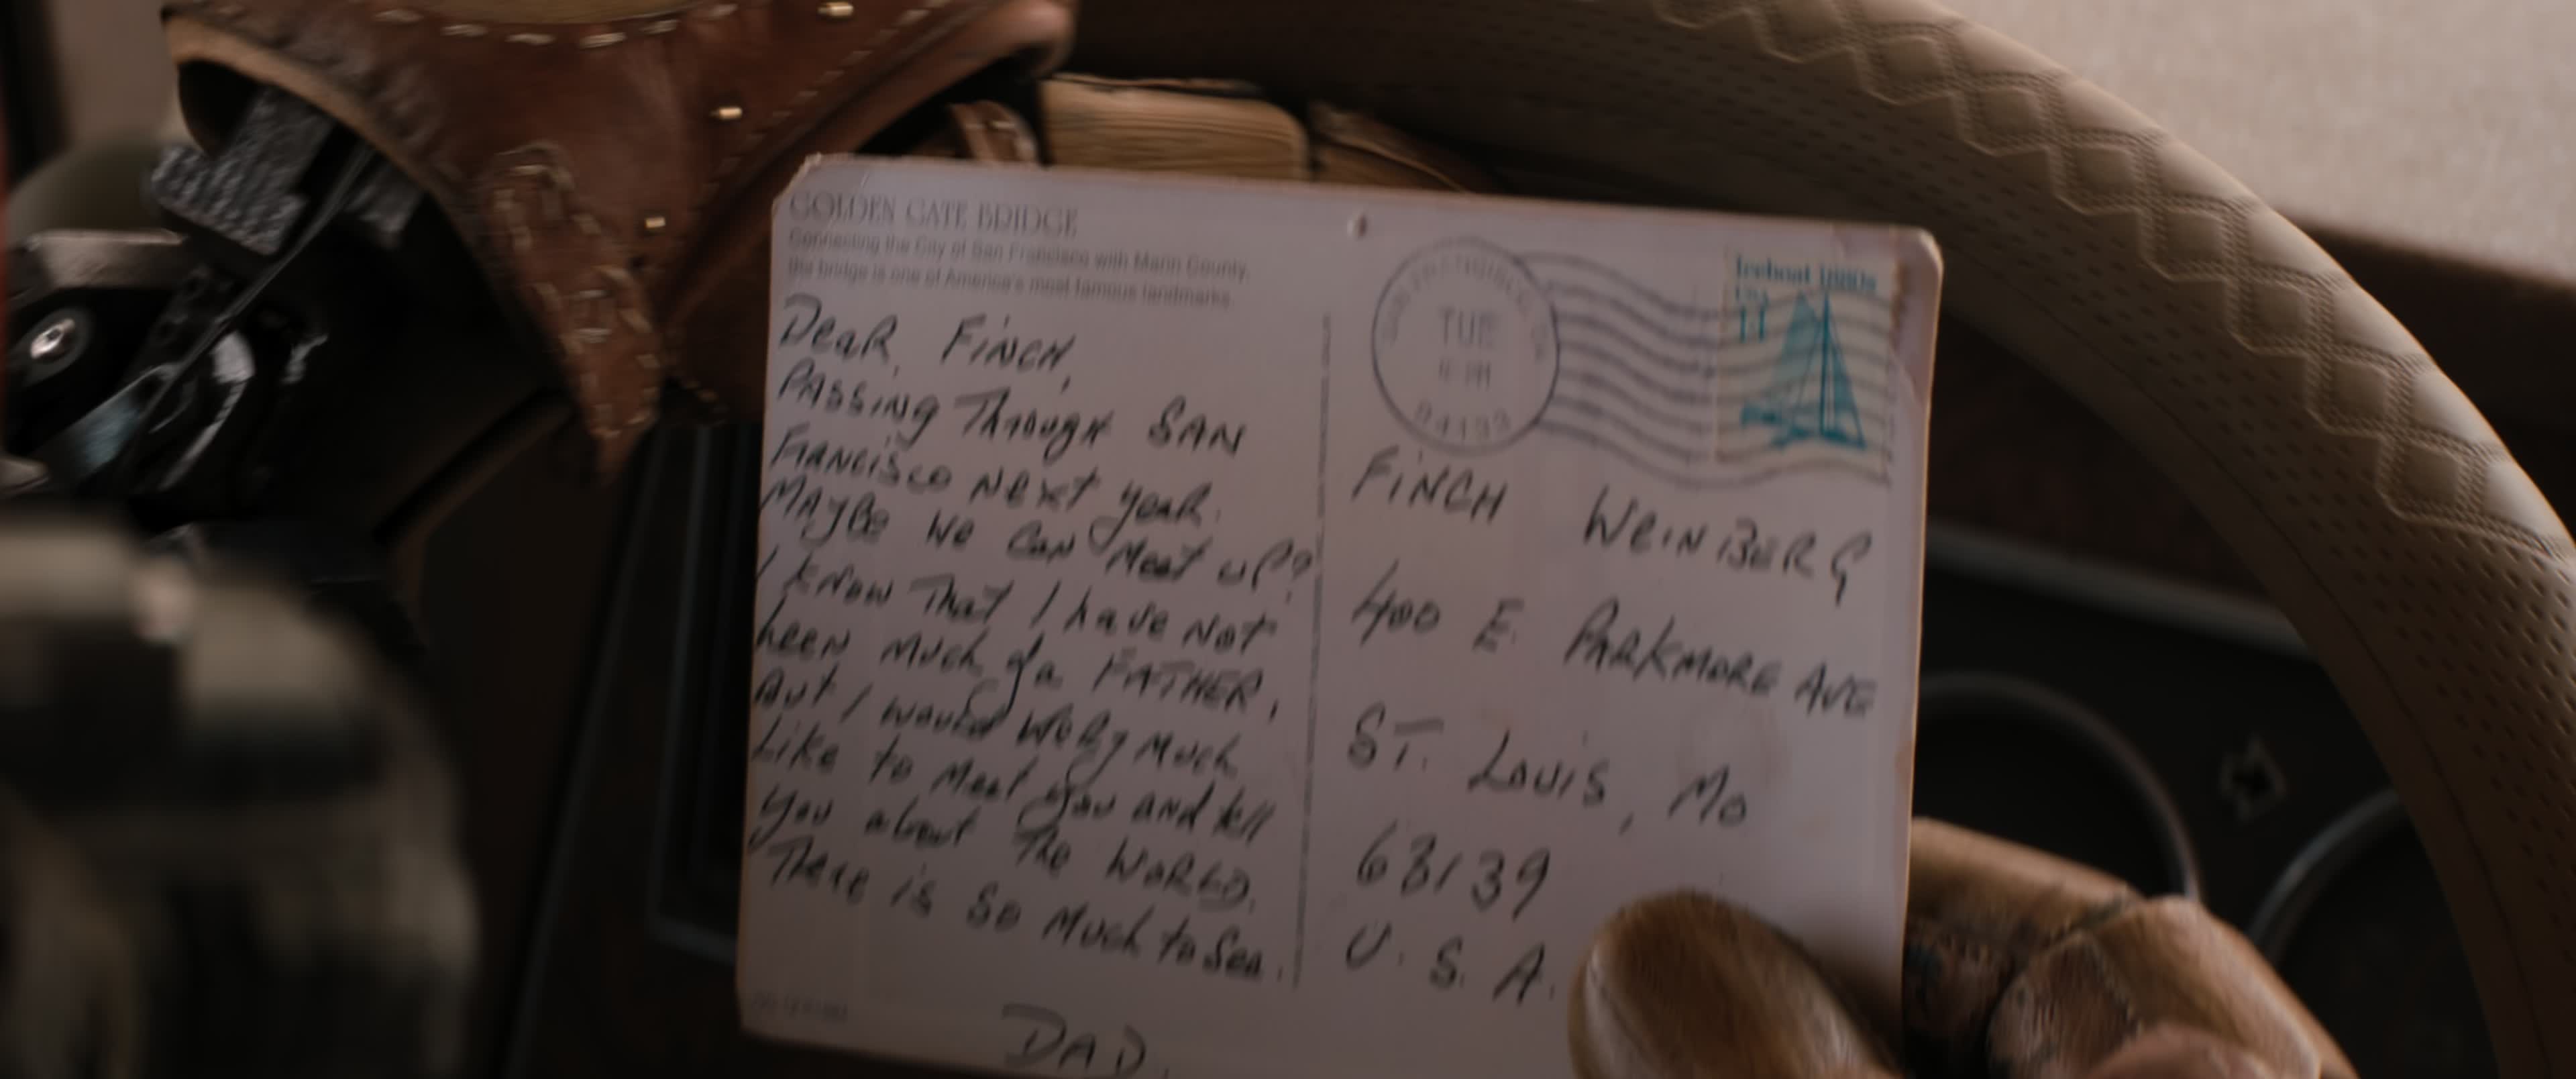 GOLDEN GATE BRIDGE
Connecting the City of San Francisco with Marin County,
the bridge is one of America's most famous landmarks.
Dear, Finch,
Passing Through San
Francisco next year.
Maybe we can meet up?
I know that I have not
been much of a FATHER,
But I would very much
Like to meet you and tell
you about the World.
There is so much to see.
DAD.
SAN FRANCISCO, CA
TUE
PM
Iceboat 1880s
USA
FINCH WEINBERG
400 E. PARKMORE AVE
ST. Louis, Mo
63139
U.S.A.